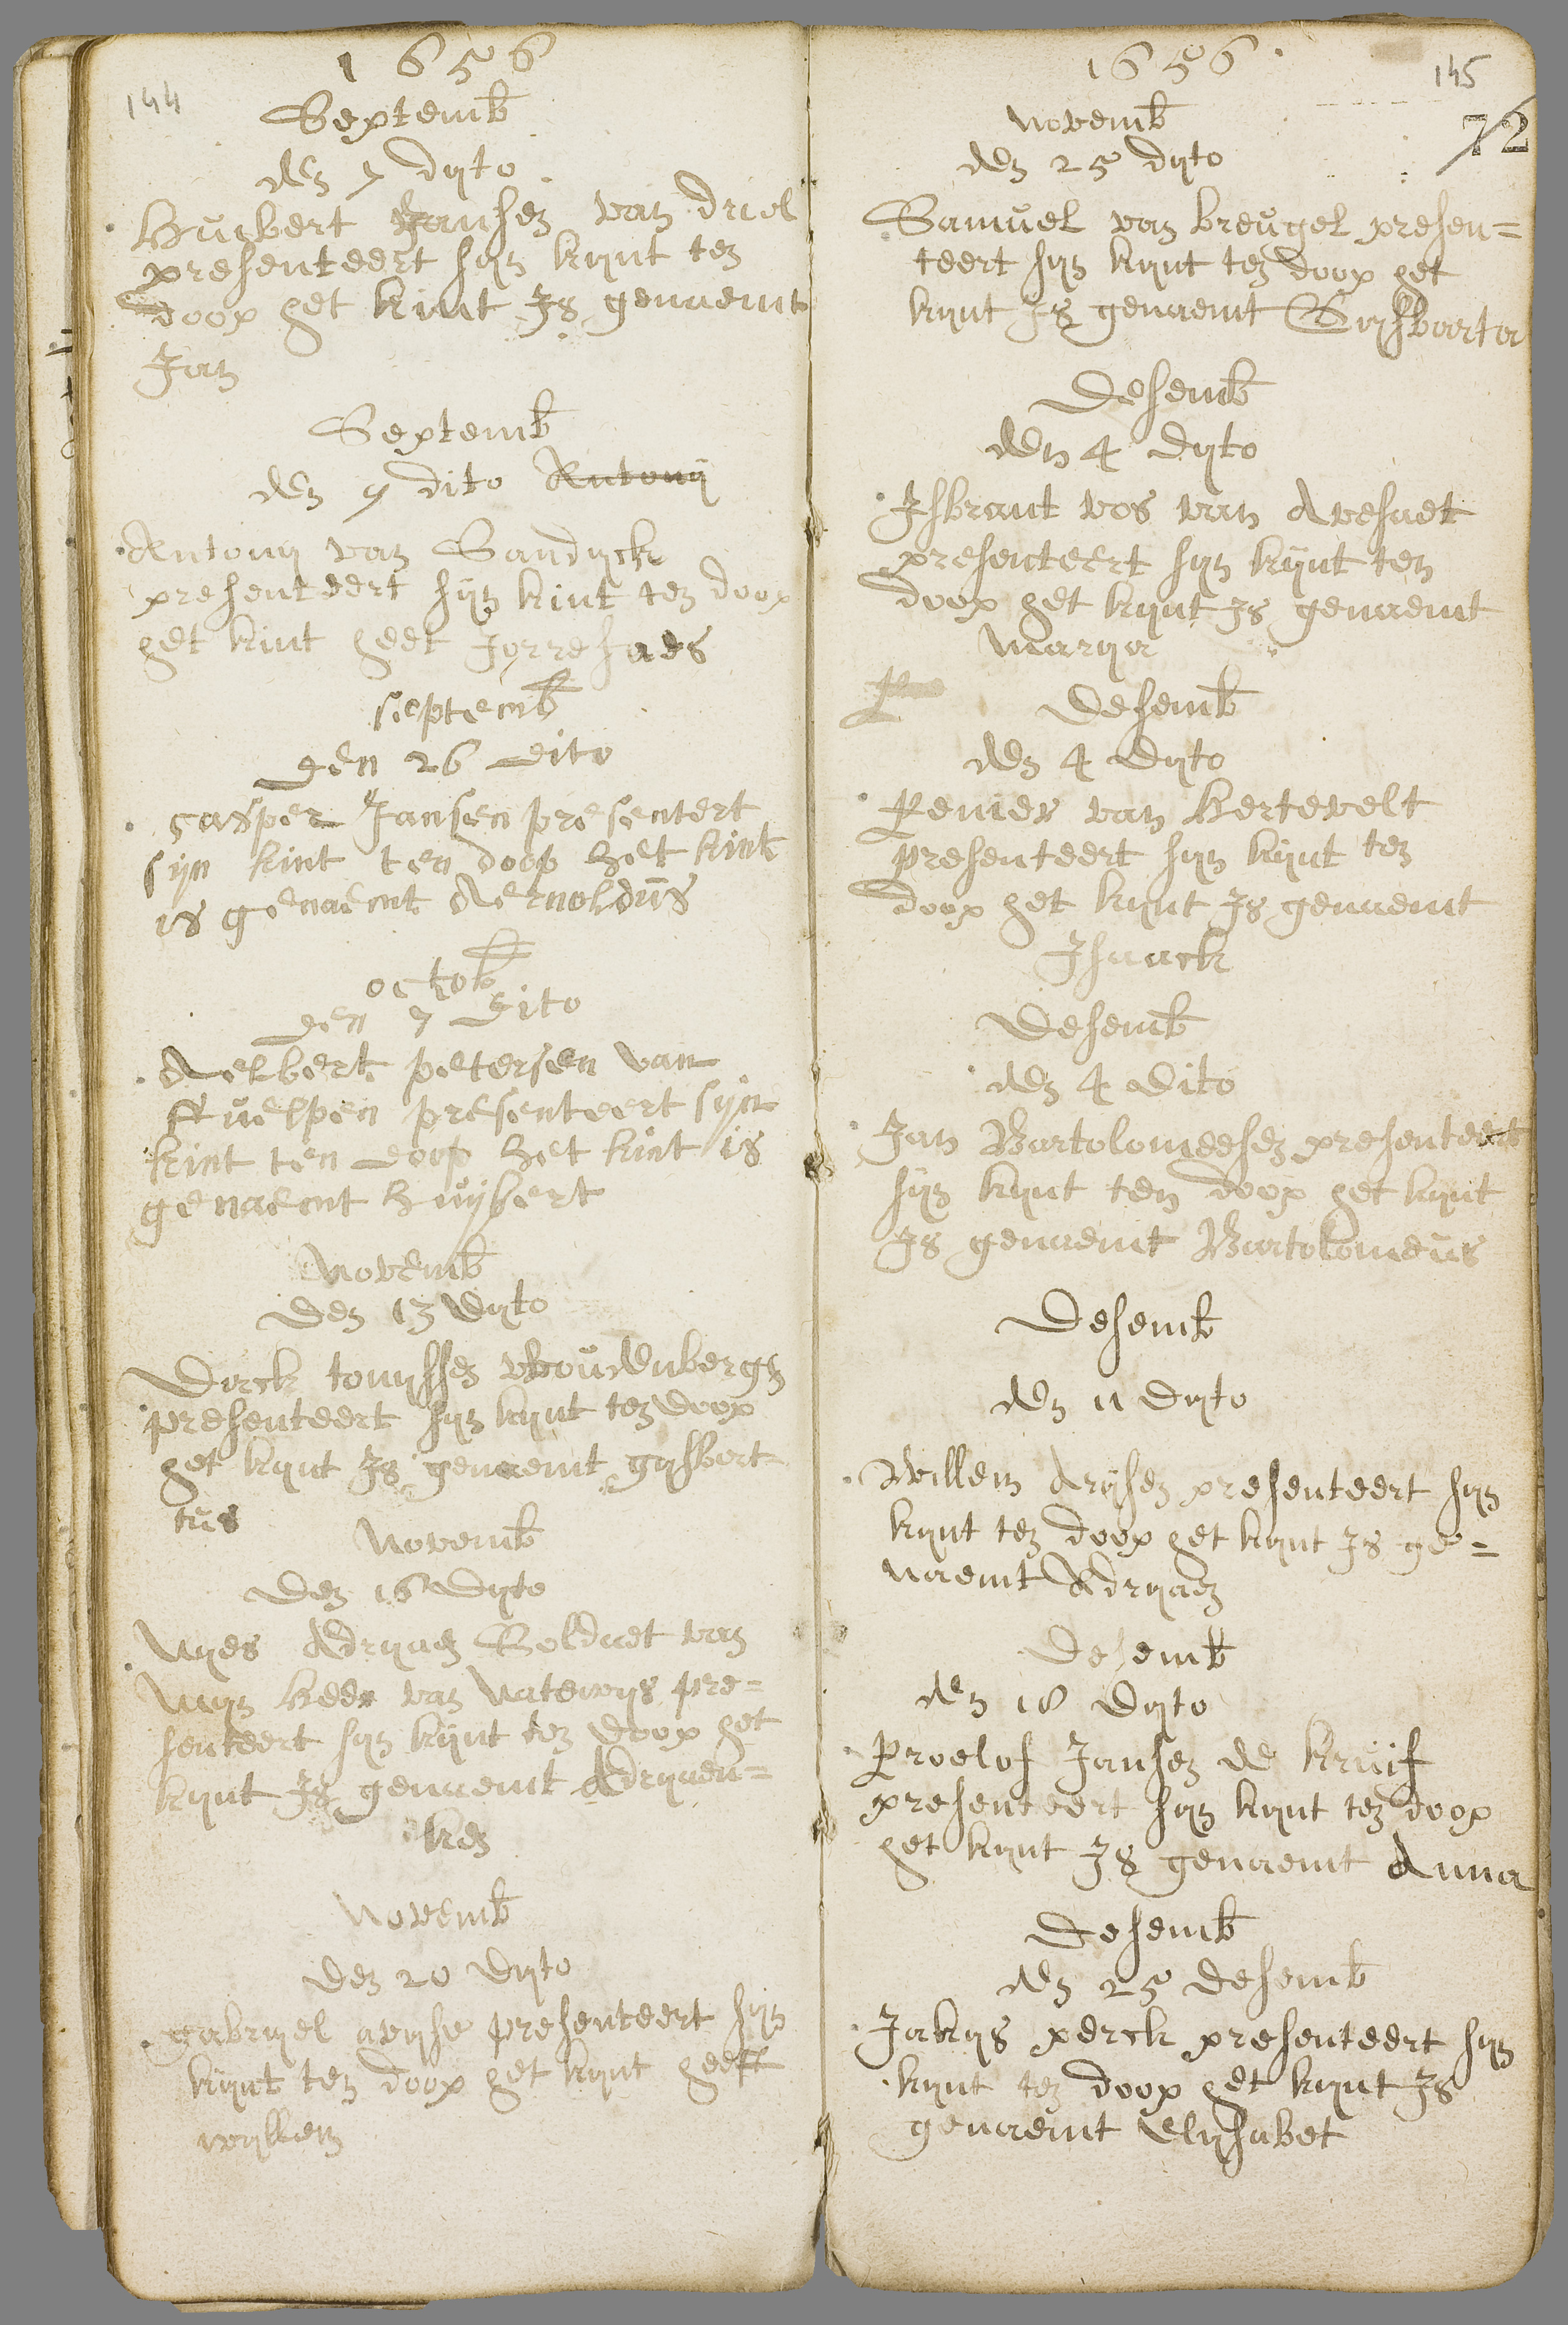 1656
144
Septemb
den 7 dyto
Huybert Jansen van driel
presenteert syn kynt ten
doop het kint Is genaemt
Jan
Septemb
den 9 dito Antony
Antony van Sandyck
presenteert syn kint ten doop
het kint heet
septemb
den 26 dito
Casper Jansen presentert
syn kint ten doop het kint
is genaemt Aernoldus
octob
den 7 dito
Aelbert petersen van
presenteert syn
kint ten doop het kint is
genaemt huybert
Novemb
den 13 dyto
Dirck tonyssen
presenteert syn kynt ten doop
het kynt Is genaemt gysbert
tus
Novemb
den 16 dyto
Adryaen Soldaet van
Myn Heer van Natewys pre=
senteert syn kynt ten doop het
kynt Is genaemt Adryaen=
ken
Novemb
den 20 dyto
gabryel presenteert syn
kynt ten doop het kynt heet
wyllem
1656
145
72
Novemb
den 25 dyto
Samuel van breugel presen=
teert syn kynt ten doop het
kynt Is genaemt Gysbarta
Desemb
den 4 dyto
Isbrant vos van Avesaet
presenteert syn kynt ten
doop het kynt Is genaemt
Marya
Desemb
den 4 dyto
Renier van Hertevelt
presenteert syn kynt ten
doop het kynt Is genaemt
Isaack
Desemb
den 4 dito
Jan Bartolomeesen presenteert
syn kynt ten doop het kynt
Is genaemt Bartolomeus
Desemb
den 11 dyto
Willem Arysen presenteert syn
kynt ten doop het kynt Is ge=
naemt Adryaen
Desemb
den 18 dyto
Roelof Jansen de Kruif
presenteert syn kynt ten doop
het kynt Is genaemt Anna
Desemb
den 25 desemb
Jakys perck presenteert syn
kynt ten doop het kynt Is
genaemt Elysabet